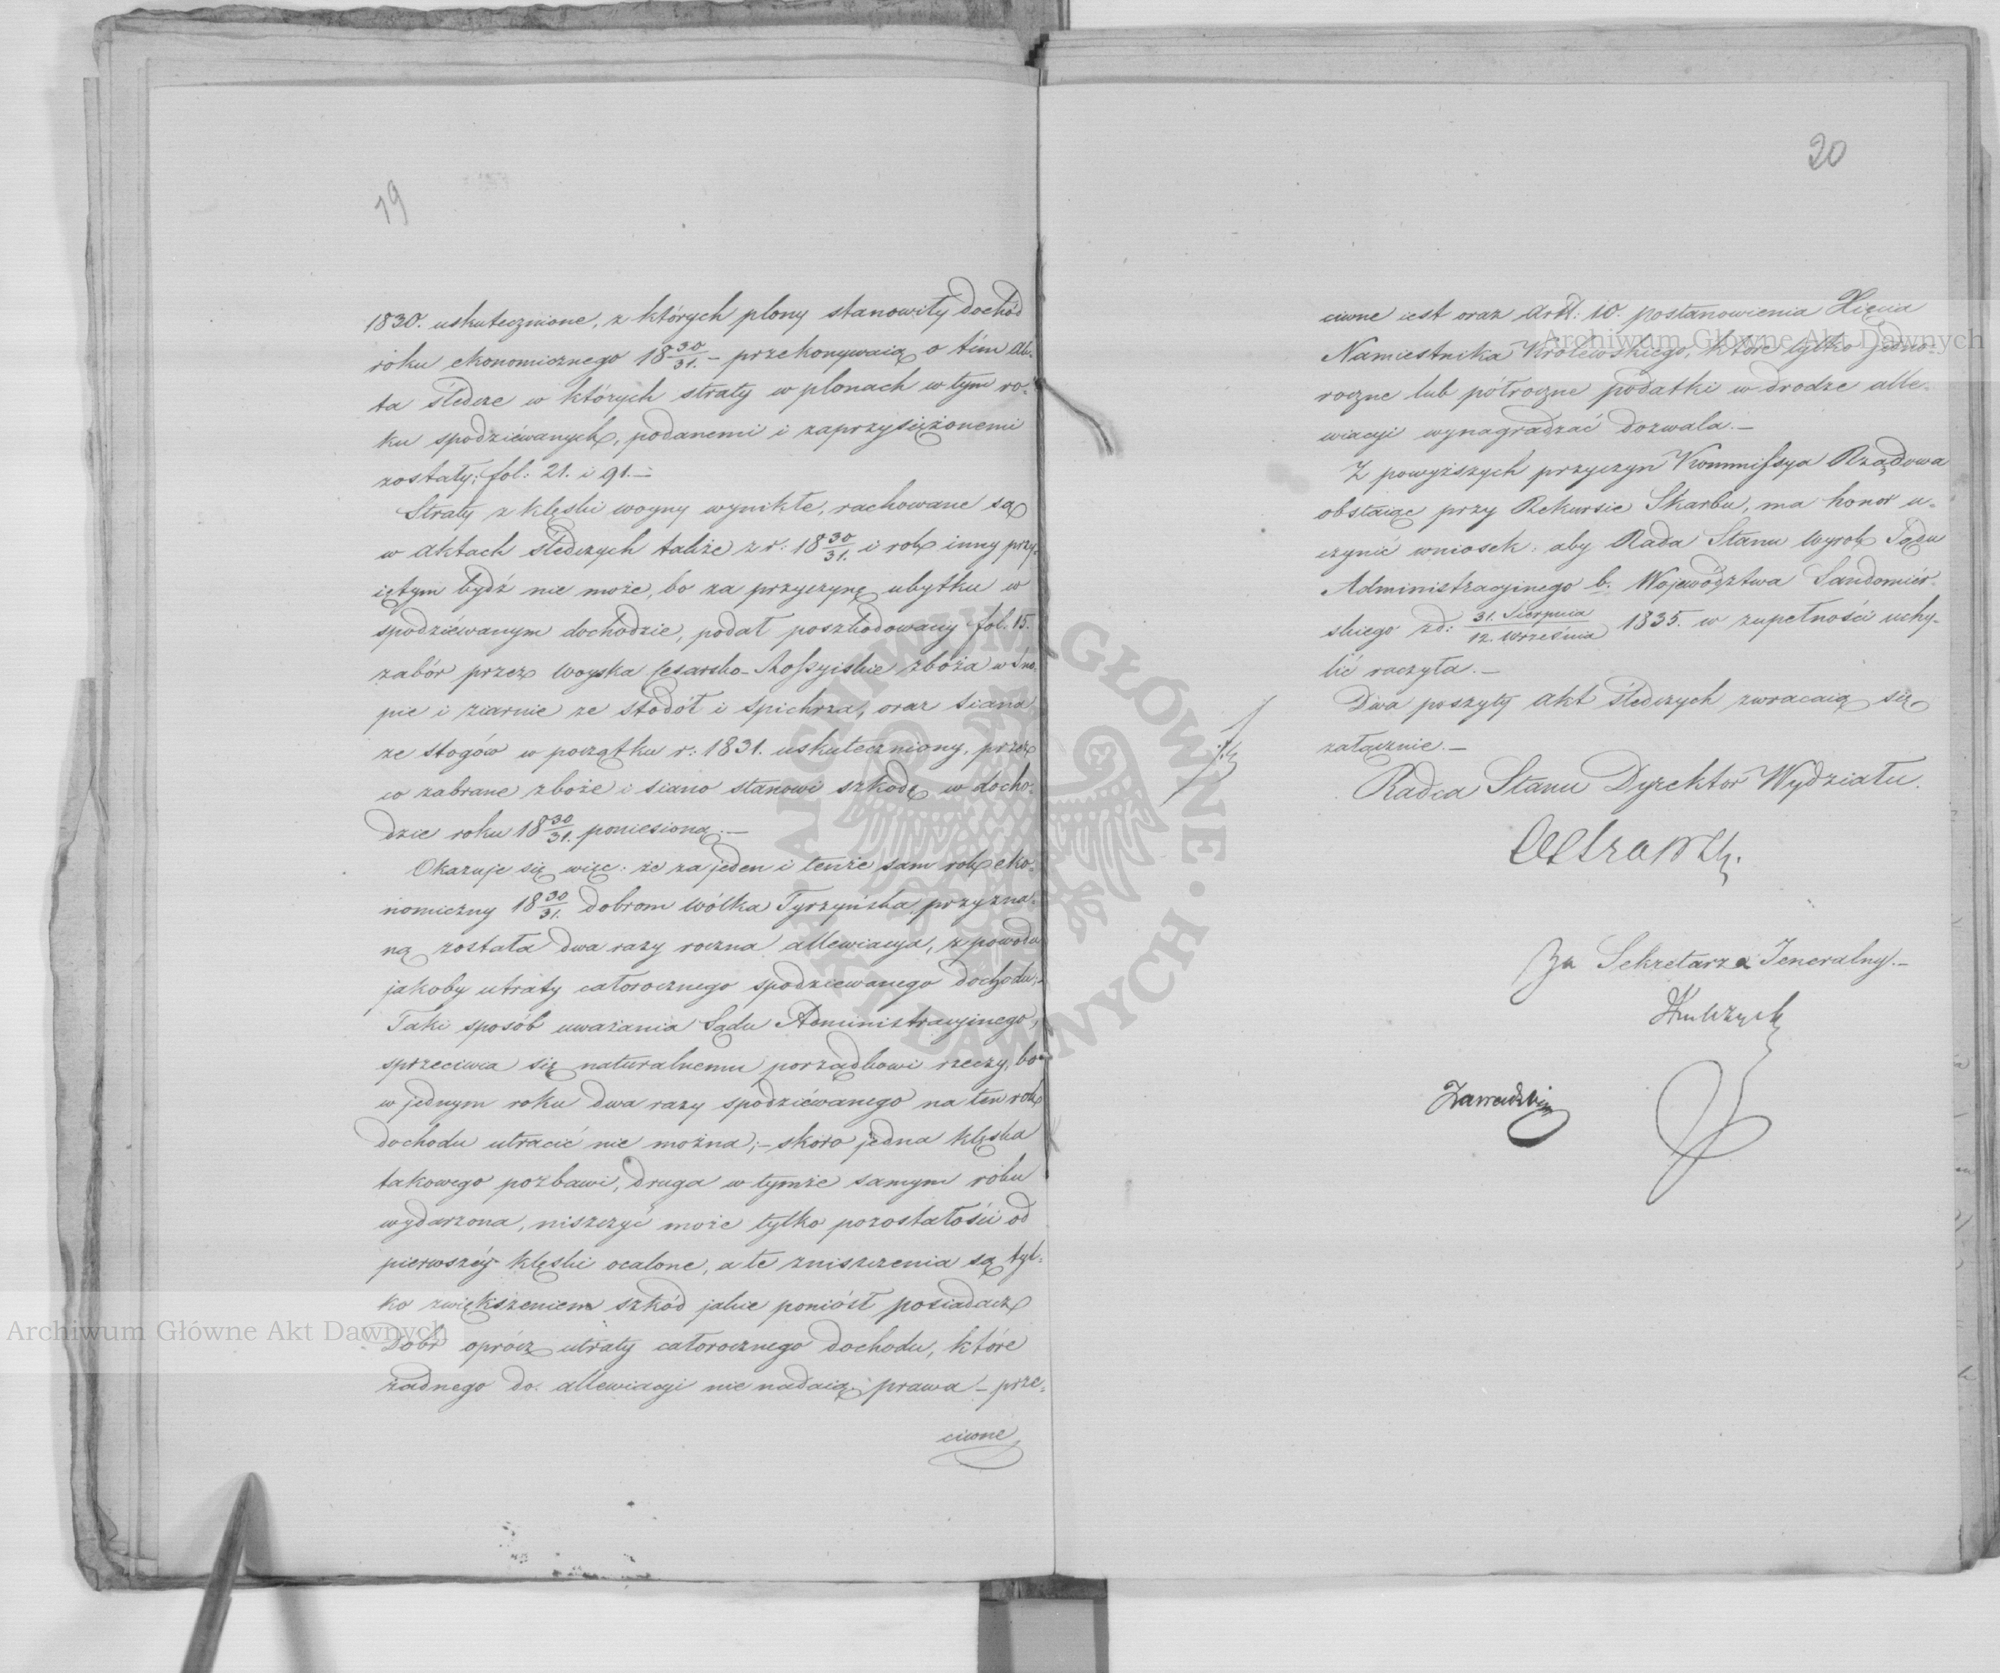 19
1830. uskutecznione, z których plony stanowiły dochód
roku ekonomicznego 18 30/31. – przekonywaią o tém ak-
ta śledcze w których straty w plonach w tym ro-
ku spodziéwanych, podanemi i zaprzysiężonemi
zostały; fol: 21. i 91. –
Straty z klęski woyny wynikłe, rachowane są
w aktach śledczych także z r: 18 30/31. i rok inny przy-
iętym bydź nie może, bo za przyczynę ubytku w
spodziéwanym dochodzie, podał poszkodowany fol. 15.
zabór przez woyska Cesarsko-Rossyiskie zboża w sno-
pie i ziarnie ze stodół i spichrza, oraz siana
ze stogów w początku r: 1831. uskuteczniony, przez
co zabrane zboże i siano stanowi szkodę w docho-
dzie roku 18 30/31. poniesioną. –
Okazuje się więc: że za jeden i tenże sam rok eko-
nomiczny 18 30/31. dobrom Wólka Tyrzyńska przyzna-
ną została dwa razy roczna allewiacya, z powodu
jakoby utraty całorocznego spodziewanego dochodu. –
Taki sposób uważania Sądu Administracyjnego,
sprzeciwia się naturalnemu porządkowi rzeczy, bo
w jednym roku dwa razy spodziéwanego na ten rok
dochodu utracić nie można; – skoro jedna klęska
takowego pozbawi, druga w tymże samym roku
wydarzona, niszczyć może tylko pozostałości od
pierwszéy klęski ocalone, a te zniszczenia są tyl-
ko zwiększeniem szkód jakie poniósł posiadacz
Dobr oprócz utraty całorocznego dochodu, które
żadnego do allewiacyi nie nadaią prawa – prze-
ciwné
20
ciwne iest oraz Art: 10. postanowienia Xięcia
Namiestnika Królewskiego, które tylko jedno-
roczne lub półroczne podatki w drodze alle-
wiacyi wynagradzać dozwala. –
Z powyższych przyczyn Kommissya Rządowa
obstaiąc przy Rekursie Skarbu, ma honor u-
czynić wniosek: aby Rada Stanu Wyrok Sądu
Administracyjnego b. Województwa Sandomiér-
skiego z d: 31. Sierpnia/12. Września 1835. w zupełności uchy-
lić raczyła. –
Dwa poszyty Akt śledczych zwracaią się
załącznie. –
Radca Stanu Dyrektor Wydziału.
Za Sekretarza Jeneralny. –
Archiwum Główne Akt Dawnych
Archiwum Główne Akt Dawnych
ARCHIWUM GŁÓWNE AKT DAWNYCH